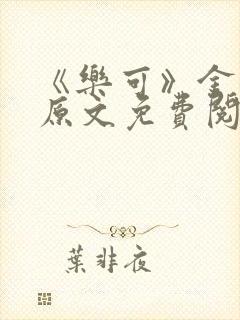 《樂可》全
原文免費閱
葉非夜